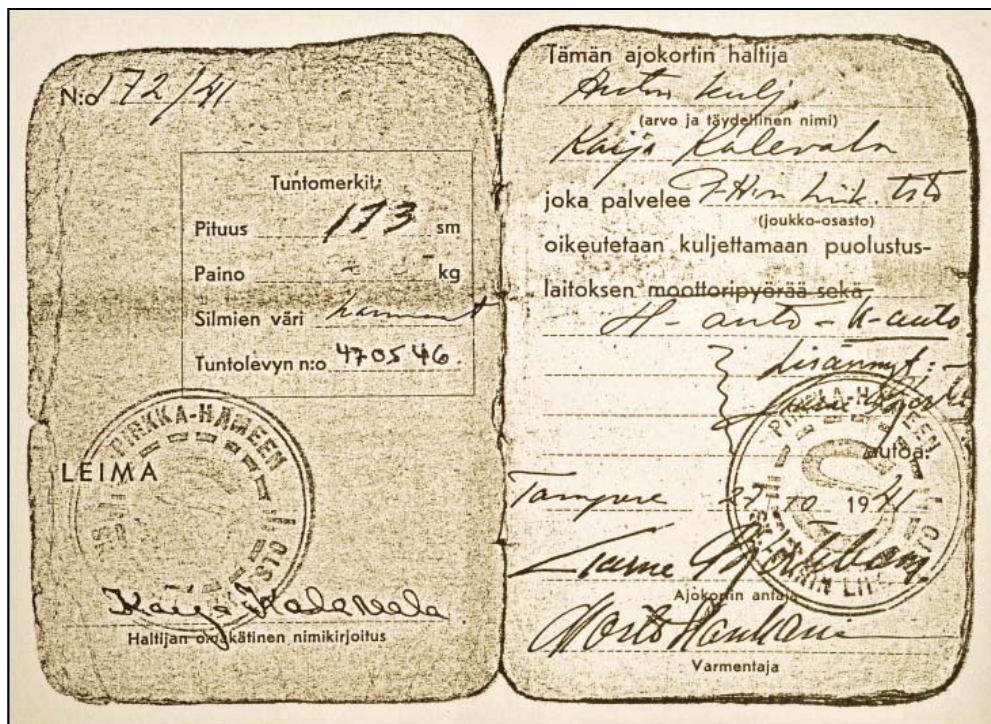 N:o 172/41
Tuntomerkit:
Pituus 173 sm
Paino - - kg
Silmien väri
Tuntolevyn n:o 470546.
PIRKKA-HÄMEEN
LEIMA
Kaija Kalevala
Haltijan omakätinen nimikirjoitus
Tämän ajokortin haltija
Auton kulj.
(arvo ja täydellinen nimi)
Kaija Kalevala
joka palvelee
(joukko-osasto)
oikeutetaan kuljettamaan puolustus-
laitoksen moottoripyörää sekä
H-auto - K-auto
Lisännyt:
autoa.
PIRKKA-HÄMEEN
Tampere 27 10 1941
Ajokortin antaja
Varmentaja